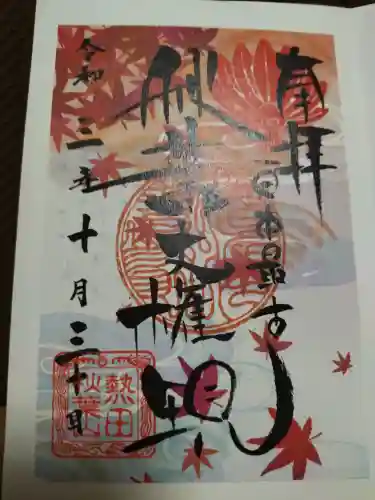 奉拝
日本最古
秋葉大権現
令和三年十月三十日
熱田
秋葉山